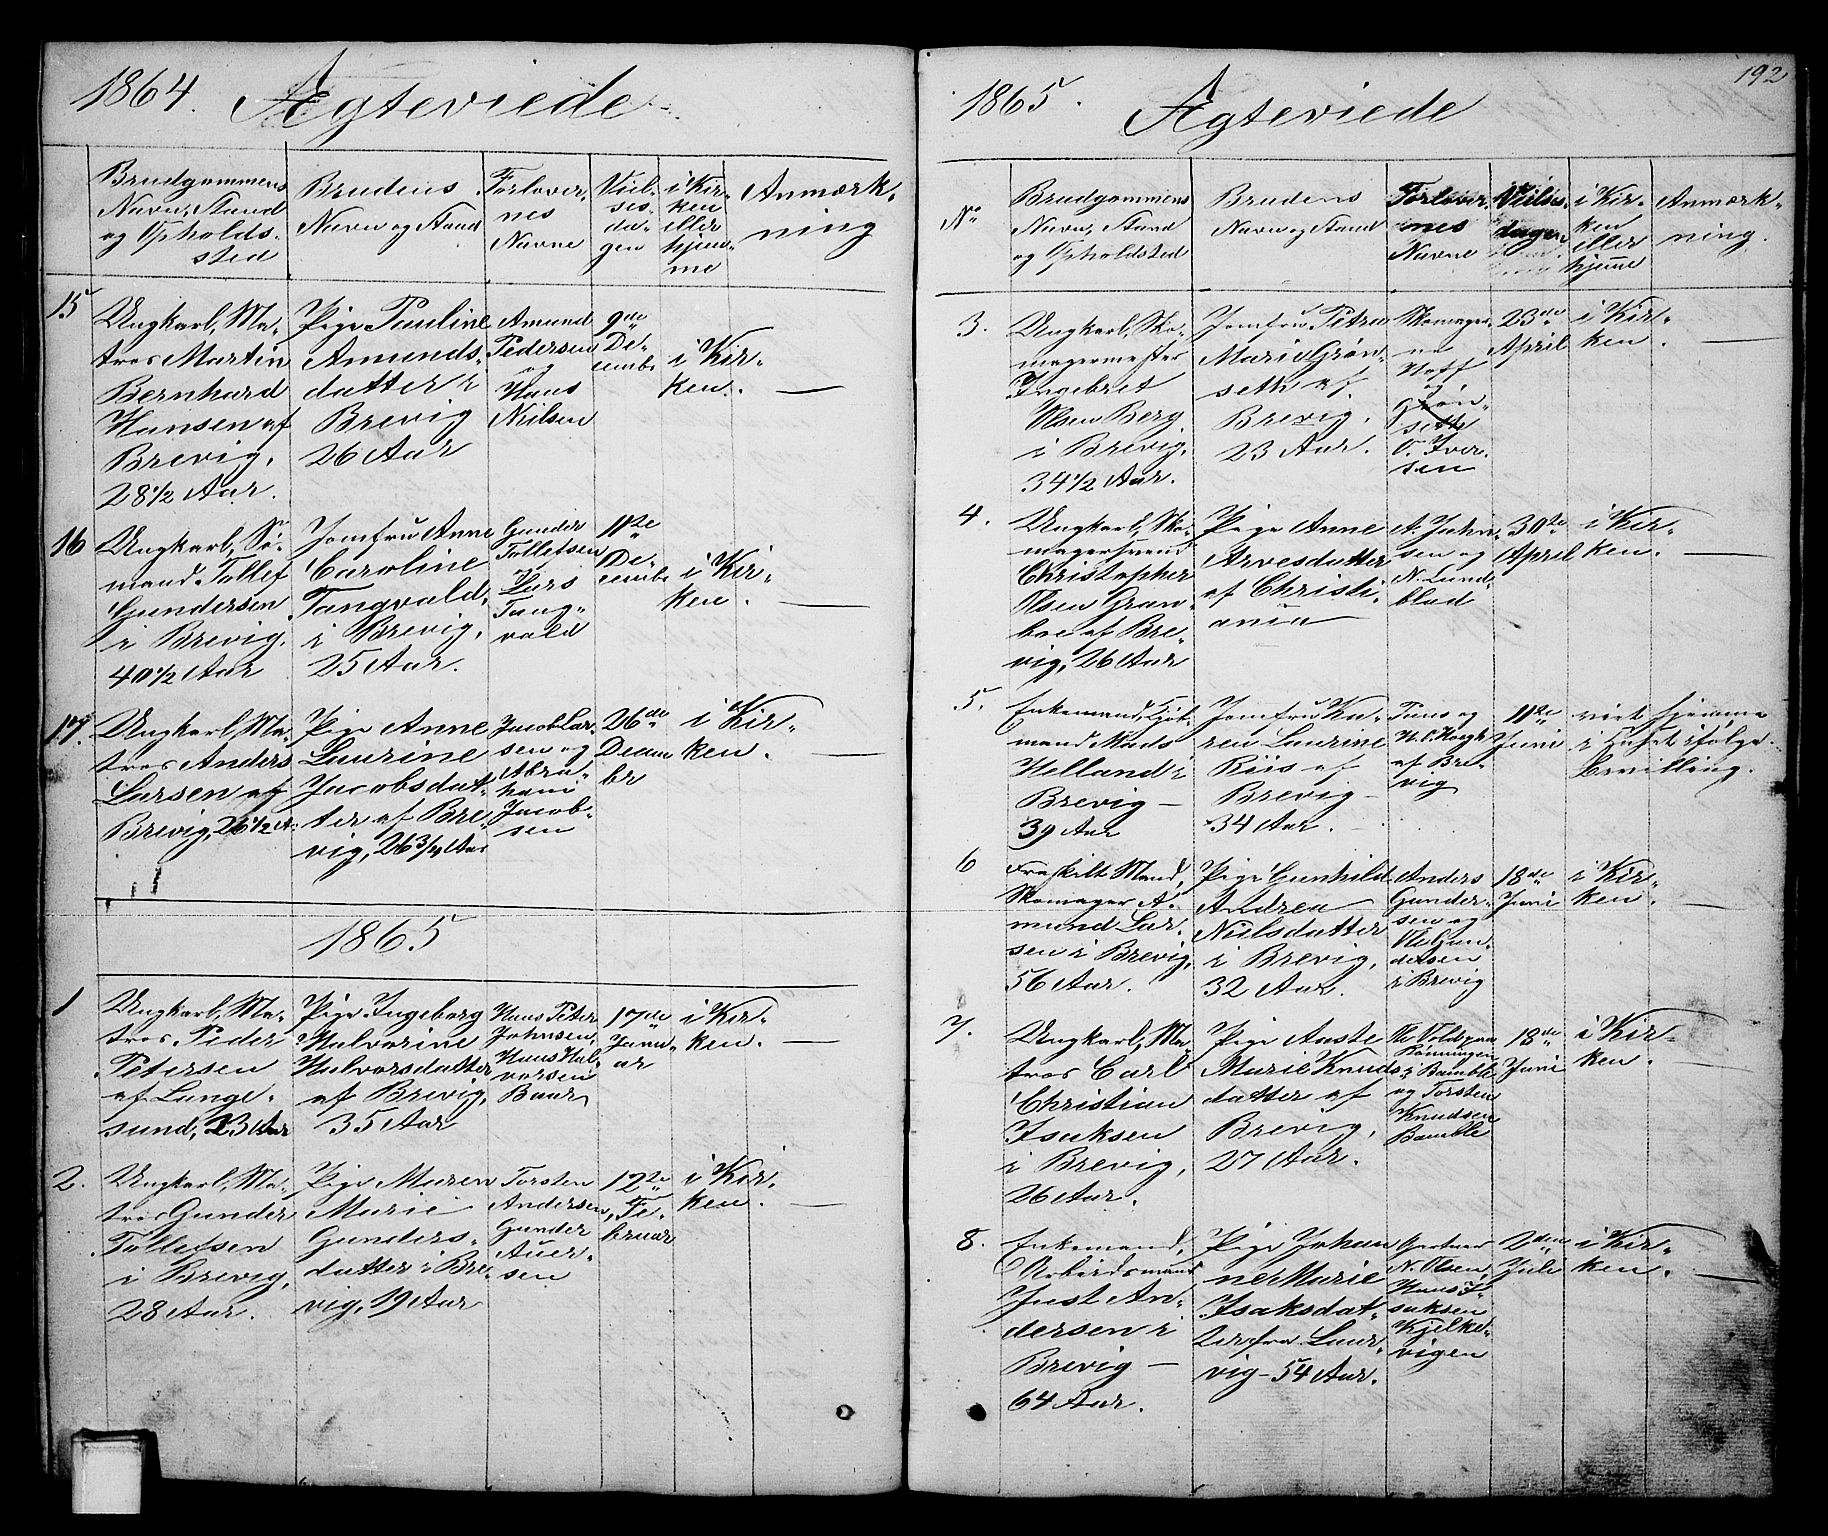 1864. Ægteviede
Brudgommens
Navn, Stand
og Opholds-
sted
Brudens
Navn og Stand
Forlover-
nes
Navne
Viel-
ses-
da-
gen
i Kir-
ken
eller
hjem-
me
Anmærk-
ning
15
Ungkarl, Ma-
tros Martin
Bernhard
Hansen af
Brevig,
28 1/2 Aar.
Pige Pauline
Amunds-
datter i
Brevig
26 Aar
Amund
Pedersen
og
Hans
Nielsen
9de
De-
cembr
i Kir-
ken.
16
Ungkarl, Sø-
mand Tollef
Gundersen
i Brevig,
40 1/2 Aar
Jomfru Anne
Caroline
Tangvald,
i Brevig,
25 Aar.
Gunder
Tollefsen
Lars
Tang-
vald
11te
De-
cembr
i Kir-
ken.
17.
Ungkarl, Ma-
tros Anders
Larsen af
Brevig, 26 1/2 A.
Pige Anne
Laurine
Jacobsdat-
ter af Bre-
vig, 26 3/4 Aar
Jacob Lar-
sen og
Abra-
ham
Jacob-
sen
26de
Decem
br
i Kir-
ken.
1865
1
Ungkarl, Ma-
tros Peder
Petersen
af Lange-
sund, 23 Aar
Pige Ingeborg
Halvorine
Halvorsdatter
af Brevig,
35 Aar
Hans Peter
Johnsen,
Hans Hal-
vorsen
Baar
17de
Janu-
ar
i Kir-
ken.
2.
Ungkarl, Ma-
tros Gunder
Tollefsen
i Brevig,
28 Aar.
Pige Maren
Marie
Gunders-
datter i Bre-
vig, 19 Aar
Torsten
Andersen,
Gunder
Auer-
sen
12te
Fe-
bruar
i Kir-
ken.
192
1865. Ægteviede
No
Brudgommens
Navn, Stand
og Opholdsted
Brudens
Navn og Stand
Forlover-
nes
Navne
Vielses-
dagen
i Kir-
ken
eller
hjeme
Anmærk-
ning.
3.
Ungkarl, Sko-
magermester
Ingebret
Olsen Berg
i Brevig,
34 1/2 Aar.
Jomfru Petra
Marie Grøn-
seth af
Brevig,
23 Aar.
Skomager-
ne
Hoff
og
Grøn-
seth
O. Iver-
sen
23de
April
i Kir-
ken.
4.
Ungkarl, Sko-
magersvend
Christopher
Olsen Gran-
boe af Bre-
vig, 26 Aar
Pige Anne
Arvesdatter
af Christi-
ania
A. John-
sen og
N. Lund-
blad
30te
April
i Kir-
ken.
5.
Enkemand, Kjøb-
mand Mads
Helland i
Brevig
39 Aar
Jomfru Ka-
ren Laurine
Riis af
Brevig
34 Aar.
af Bre-
vig
11te
Juni
viet hjemme
i Huset ifølge
Bevilling.
6
Fraskilt Mand,
Skomager A-
mund Lar-
sen i Brevig,
56 Aar.
Pige Gunhild
Andrea
Nielsdatter
i Brevig,
32 Aar.
Anders
Gunder-
sen og
Ole Gun-
dersen
i Brevig
18de
Juni
i Kir-
ken.
7.
Ungkarl, Ma-
tros Carl
Christian
Isaksen
i Brevig,
26 Aar.
Pige Aaste
Marie Knuds
datter af
Brevig,
27 Aar.
Rønningen
i Bamble
og Torsten
Knudsen
Bamble
18de
Juni
i Kir-
ken.
8.
Enkemand,
Arbeidsmand
Just An-
dersen i
Brevig
64 Aar.
Pige Johan
ne Marie
Isaksdat-
ter fra Laur-
vig - 54 Aar.
Gartner
N. Olsen,
Hans I-
saksen
Kjelke-
vigen
2den
Juli
i Kir-
ken.